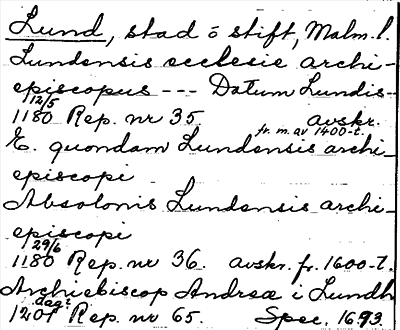 Lund, stad o stift, Malm. l.
Lundensis ecclesie archi-
episcopus --- Datum Lundis--
12/5
1180 Rep. nr 35. avskr.
fr. m. av 1400-t.
E. quondam Lundensis archi-
episcopi
Absolonis Lundensis archi-
episcopi
29/6
1180 Rep. nr 36. avskr. fr. 1600-t.
Archiebiscop Andreæ i Lundh
dag?
1201 Rep. nr 65. Spec. 1693.